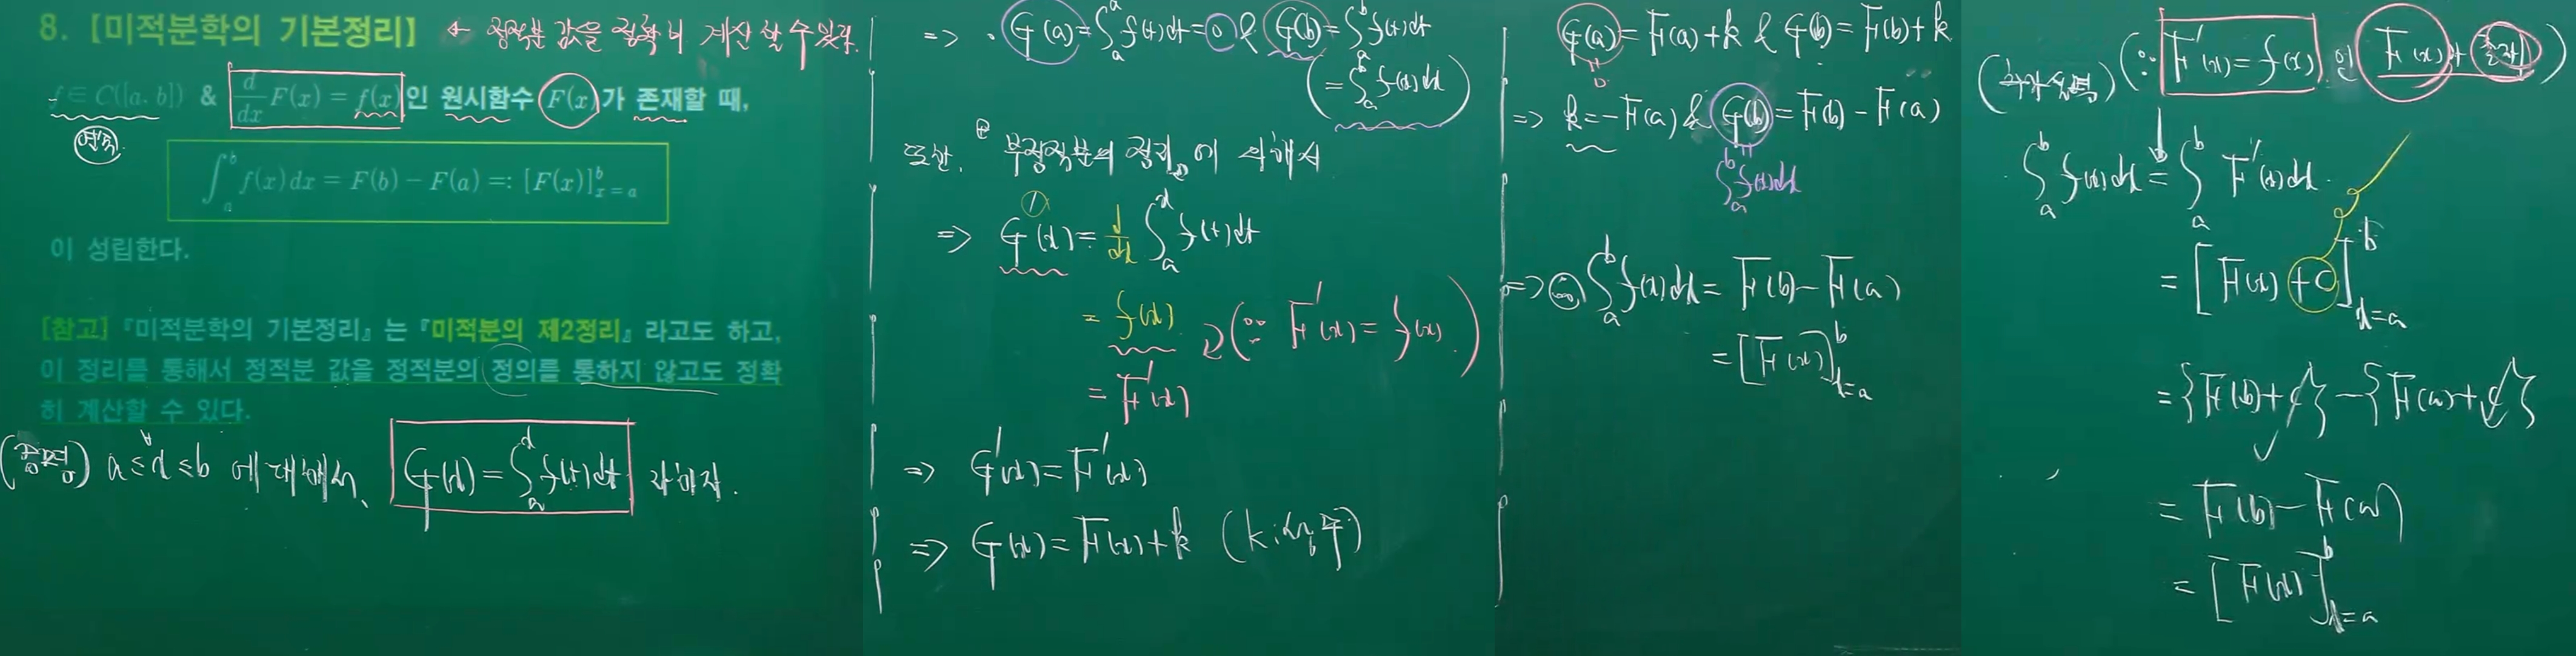 8. [미적분학의 기본정리] ← 정적분 값을 정확히 계산할 수 있다.
f ∈ C([a, b]) & d/dx F(x) = f(x)인 원시함수 F(x)가 존재할 때,
연속
∫_a^b f(x)dx = F(b) − F(a) =: [F(x)]_{x=a}^b
이 성립한다.
[참고] 『미적분학의 기본정리』는 『미적분의 제2정리』라고도 하고,
이 정리를 통해서 정적분 값을 정적분의 정의를 통하지 않고도 정확
히 계산할 수 있다.
(증명) a ≤ ∀x ≤ b 에 대해서, G(x) = ∫_a^x f(t)dt 라 하자.
=> · G(a) = ∫_a^a f(t)dt = 0 & G(b) = ∫_a^b f(t)dt
(= ∫_a^b f(x)dx)
또한, 『부정적분의 정리』에 의해서
=> G'(x) = d/dx ∫_a^x f(t)dt
= f(x)
= F'(x) (∵ F'(x) = f(x))
=> G'(x) = F'(x)
=> G(x) = F(x) + k (k: 상수)
G(a) = F(a) + k & G(b) = F(b) + k
0
=> k = −F(a) & G(b) = F(b) − F(a)
∫_a^b f(x)dx
=> ∴ ∫_a^b f(x)dx = F(b) − F(a)
= [F(x)]_{x=a}^b
(∵ F'(x) = f(x) 인 F(x) + 존재)
∫_a^b f(x)dx = ∫_a^b F'(x)dx
= [F(x) + C]_{x=a}^b
= {F(b) + C} − {F(a) + C}
= F(b) − F(a)
= [F(x)]_{x=a}^b